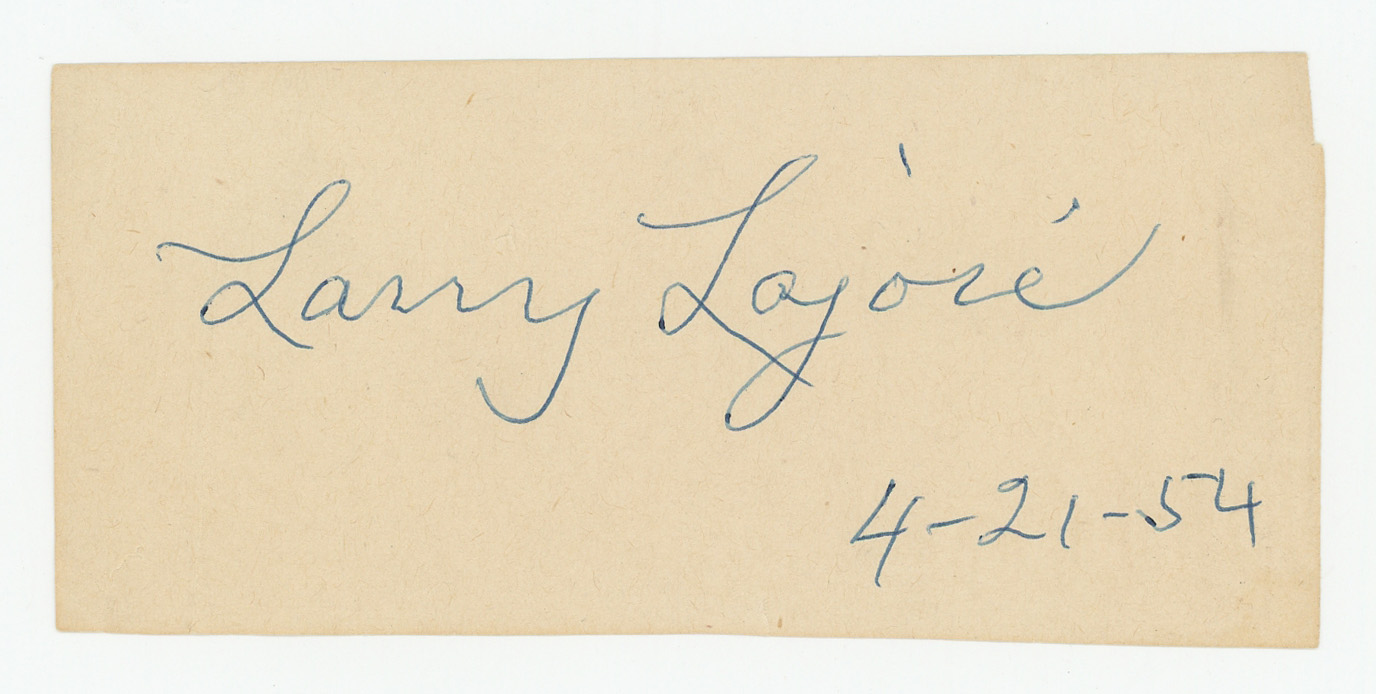 Larry Lajoie
4-21-54